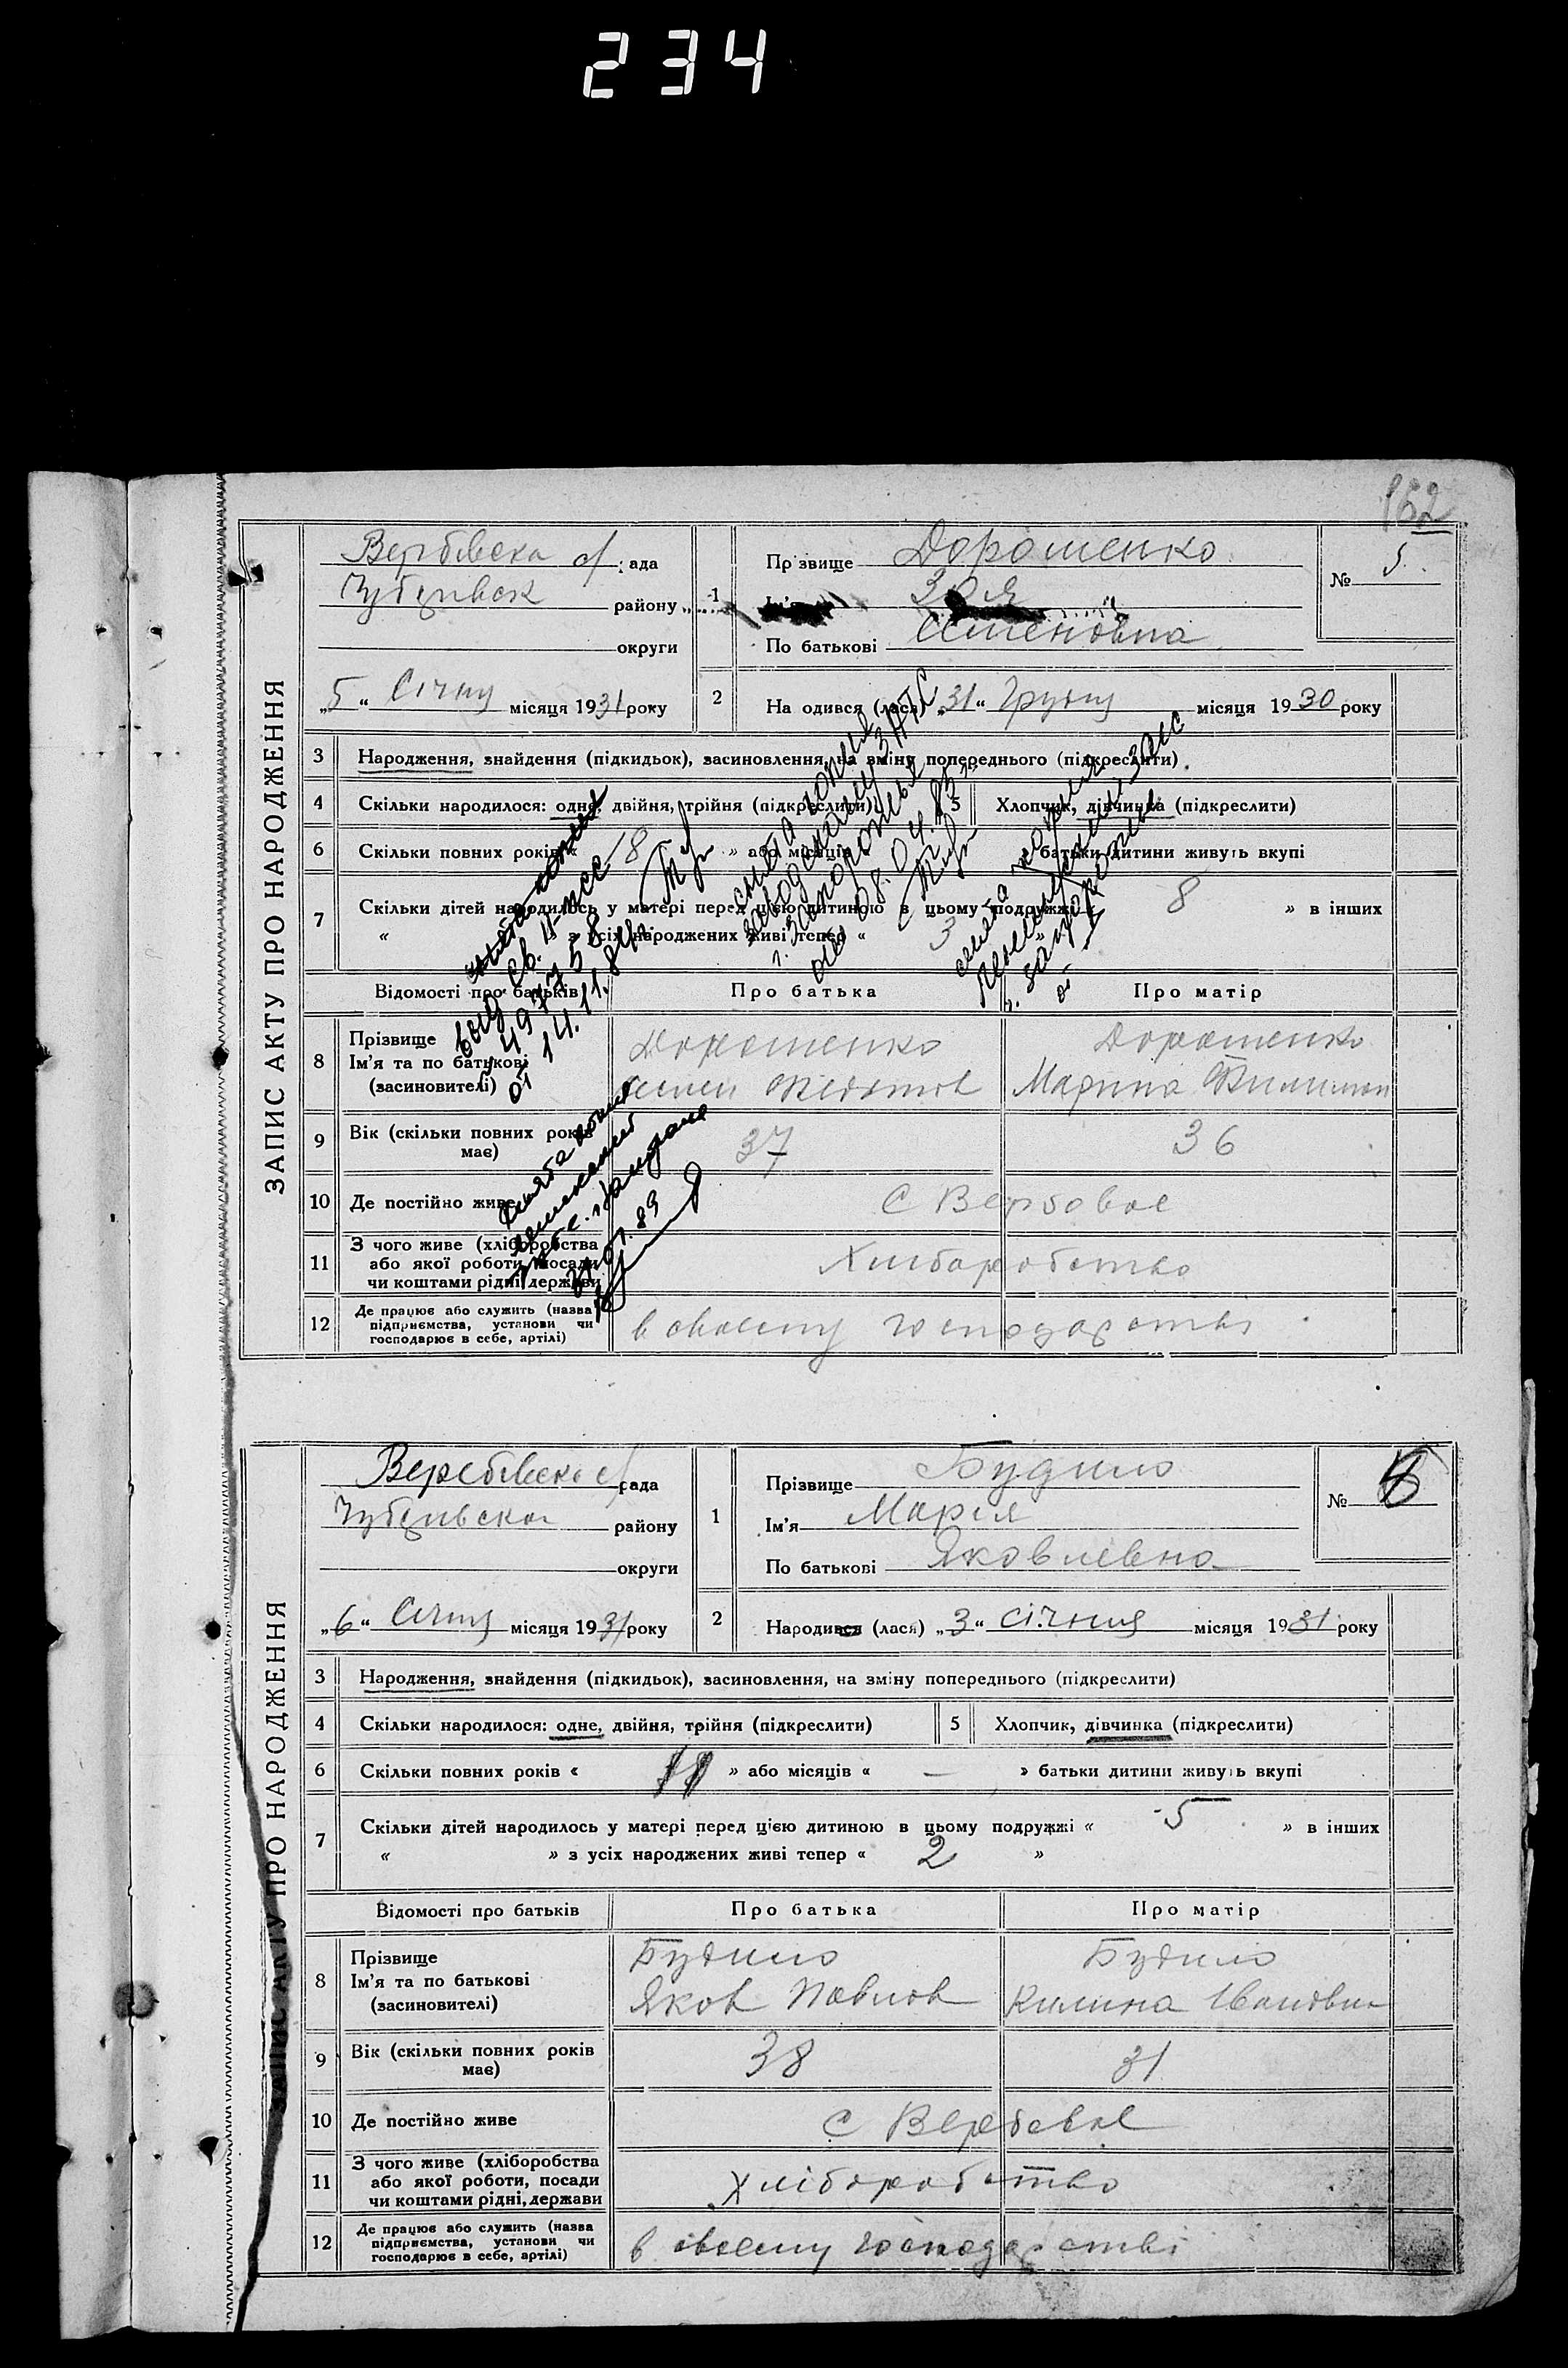 234
162
ЗАПИС АКТУ ПРО НАРОДЖЕННЯ
Вербівська с/рада
району
округи
„5“ Січня місяця 1931 року
1 Прізвище Дорошенко
Ім'я Зоя
По батькові Семеновна
№ 5
2 Народився (лася) „31“ Грудня місяця 1930 року
3 Народження, знайдення (підкидьок), засиновлення, на зміну попереднього (підкреслити)
4 Скільки народилося: одне, двійня, трійня (підкреслити)
5 Хлопчик, дівчинка (підкреслити)
6 Скільки повних років « 18 » або місяців « » батьки дитини живуть вкупі
7 Скільки дітей народилось у матері перед цією дитиною в цьому подружжі « 8 » в інших
« » з усіх народжених живі тепер « 3 »
снята копия
выд. св.
от 14.11.
снята копия
Заводскому ЗАГС
г. Запорожья
08.04.83
снята копия
Ленинским ЗАГС
г. Запорожья
снята копия
01.89
Відомості про батьків Про батька Про матір
8 Прізвище
Ім'я та по батькові
(засиновителі)
Дорошенко
Семен Федотов
Дорошенко
Марина
9 Вік (скільки повних років
має) 37 36
10 Де постійно живе С Вербовое
11 З чого живе (хліборобства
або якої роботи, посади
чи коштами рідні, держави
Хлибаробство
12 Де працює або служить (назва
підприємства, установи чи
господарює в себе, артілі)
в своему господарстві
ЗАПИС АКТУ ПРО НАРОДЖЕННЯ
Веребівська с/рада
району
округи
„6“ Січня місяця 1931 року
1 Прізвище Будило
Ім'я Марія
По батькові Яковлевна
№ 6
2 Народився (лася) „3“ січння місяця 1931 року
3 Народження, знайдення (підкидьок), засиновлення, на зміну попереднього (підкреслити)
4 Скільки народилося: одне, двійня, трійня (підкреслити)
5 Хлопчик, дівчинка (підкреслити)
6 Скільки повних років « 11 » або місяців « — » батьки дитини живуть вкупі
7 Скільки дітей народилось у матері перед цією дитиною в цьому подружжі « 5 » в інших
« » з усіх народжених живі тепер « 2 »
Відомості про батьків Про батька Про матір
8 Прізвище
Ім'я та по батькові
(засиновителі)
Будило
Яков Павлов
Будило
Килина Івановна
9 Вік (скільки повних років
має) 38 31
10 Де постійно живе С Веребовое
11 З чого живе (хліборобства
або якої роботи, посади
чи коштами рідні, держави
Хліборобство
12 Де працює або служить (назва
підприємства, установи чи
господарює в себе, артілі)
в своему господарстві